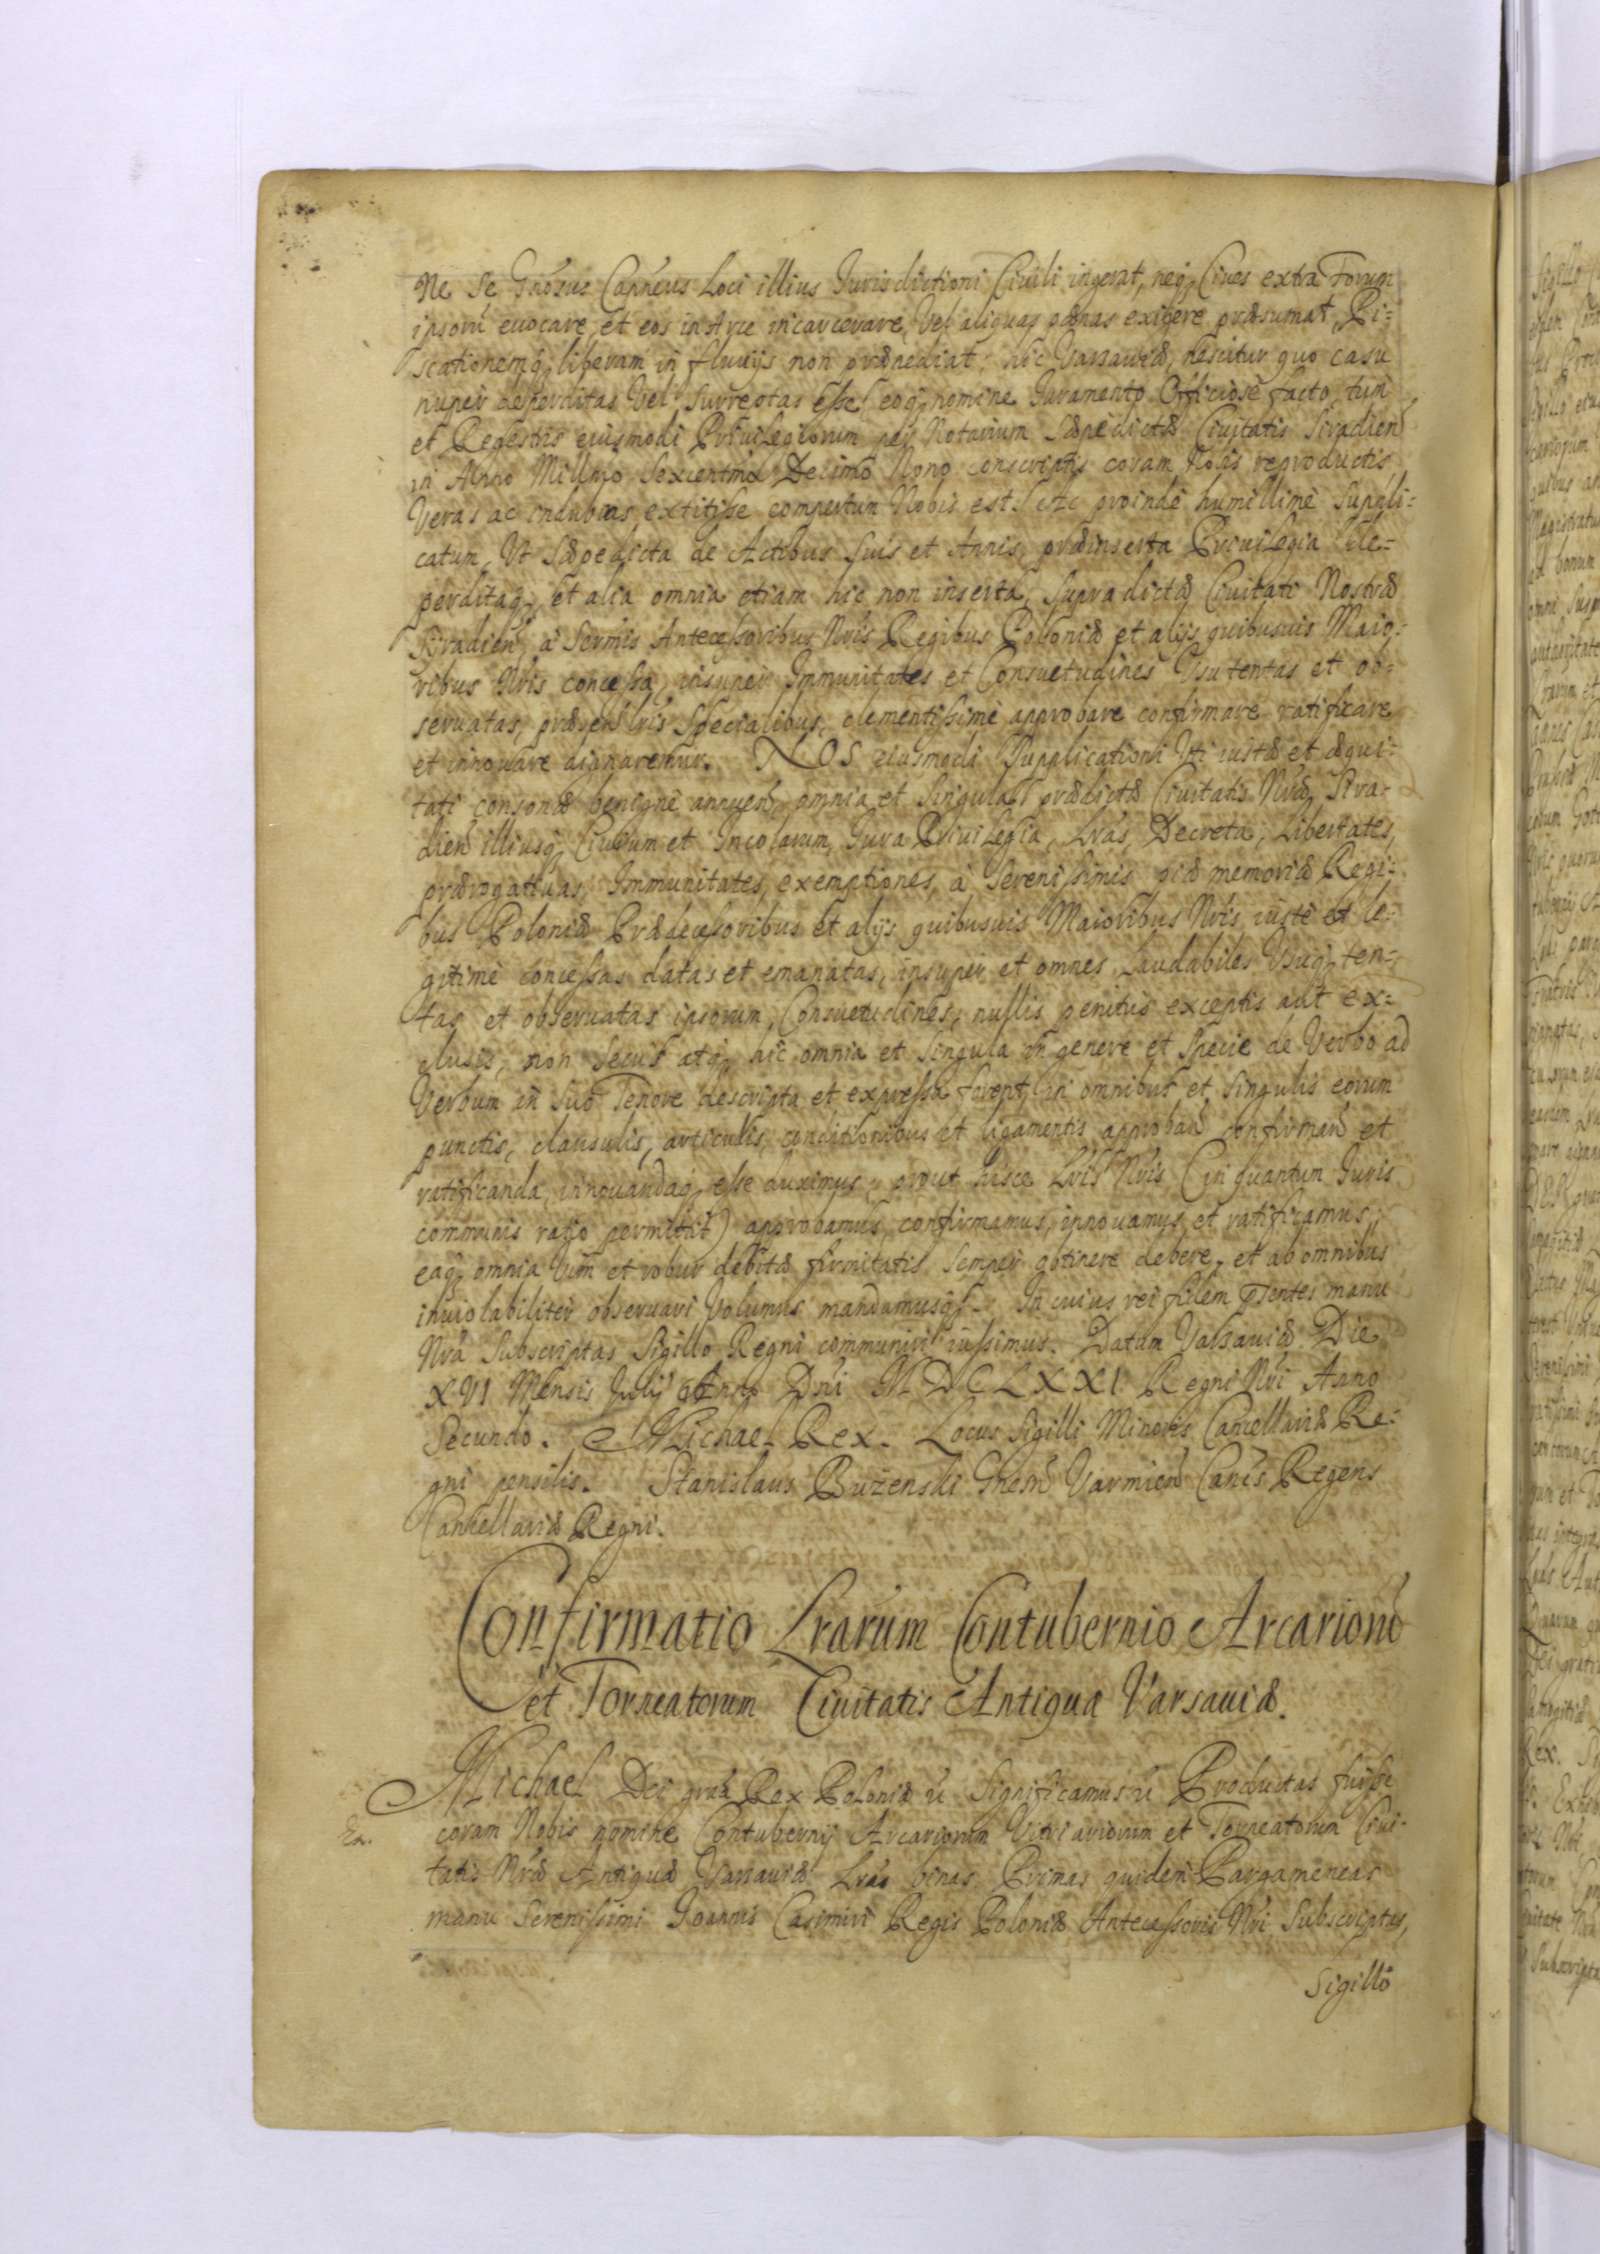 Ne se Gnosus Capneus Loci illius Jurisdictioni Ciuili ingerat, neq, Ciues extra Forum
ipsorū euocare, et eos in Arce incarcerare, Vel aliquas pœnas exigere præsumat, Pi=
scationemq, liberam in fluuijs non præpediat: hic Varsauiæ, nescitur quo casu
nuper deperditas Vel surreptas esse eoq, nomine Juramento Officiosè facto, tum
et Regestris eiusmodi Priuilegiorum per Notarium Sæpedictæ Ciuitatis Siradien
in Anno Millmo Sexcentmo Decimo Nono conscriptis coram Nobis reproductis
Veras ac indubias extitisse compertum Nobis est. Ac proinde humillimè suppli=
catum, Vt Sæpedicta de Actibus suis et Annis, præinserta Priuilegia de=
perditaq, et alia omnia etiam hic non inserta, Supradictæ Ciuitati Nostræ
Siradien, à Sermis Antecessoribus Nris Regibus Poloniæ et alijs quibusuis Maio=
ribus Nris concessa, insuper Immunitates et Consuetudines Vsu tentas et ob=
seruatas, præsen Lris Specialibus, clementissimè approbare confirmare ratificare
et innouare dignaremur. NOS eiusmodi Supplicationi Vti iustæ et æqui=
tati consonæ benignè annuen, omnia et singula prædictæ Ciuitatis Nræ Sira=
dien illiusq, Ciuium et Incolarum, Jura Priuilegia, Lras, Decreta, Libertates,
prærogatiuas, Immunitates, exemptiones, à Serenissimis piæ memoriæ Regi=
bus Poloniæ Prædecessoribus et alijs quibusuis Maioribus Nris iustè et le=
gitimè concessas datas et emanatas, insuper et omnes Laudabiles Vsuq, ten=
tas et obseruatas ipsorum, Consuetudines, nullis penitus exceptis aut ex=
clusis, non secus atq, hic omnia et singula in genere et Specie de Verbo ad
Verbum in suo Tenore descripta et expressa forent, in omnibus et singulis eorum
punctis, clausulis, articulis, conditionibus et ligamentis approban confirman et
ratificanda, innouandaq, esse duximus, prout hisce Lris Nris (in quantum Juris
communis ratio permittit) approbamus, confirmamus, innouamus et ratificamus;
eaq, omnia Vim et robur debitæ firmitatis semper obtinere debere, et ab omnibus
inuiolabiliter obseruari Volumus mandamusq. In cuius rei fidem pntes manu
Nra Subscriptas Sigillo Regni communiri iussimus. Datum Varsauiæ Die
XVI Mensis Julij Anno Dni M. DCLXXI. Regni Nri Anno
Secundo. Michael Rex. Locus Sigilli Minoris Cancellariæ Re=
gni pensilis. Stanislaus Bużenski Gnesn Varmien Canis Regens
Cancellariæ Regni.
Confirmatio Lrarum Contubernio Arcariorū
et Torneatorum Ciuitatis Antiquæ Varsauiæ.
Michael Dei gra Rex Poloniæ ec Significamus ec Productas fuisse
coram Nobis nomine Contubernij Arcariorum Vitriariorum et Torneatorum Ciui-
tatis Nræ Antiquæ Varsauiæ Lras binas. Primas quidem Pargameneas
manu Serenissimi Joannis Casimiri Regis Poloniæ Antecessoris Nri Subscriptas,
Sigillo